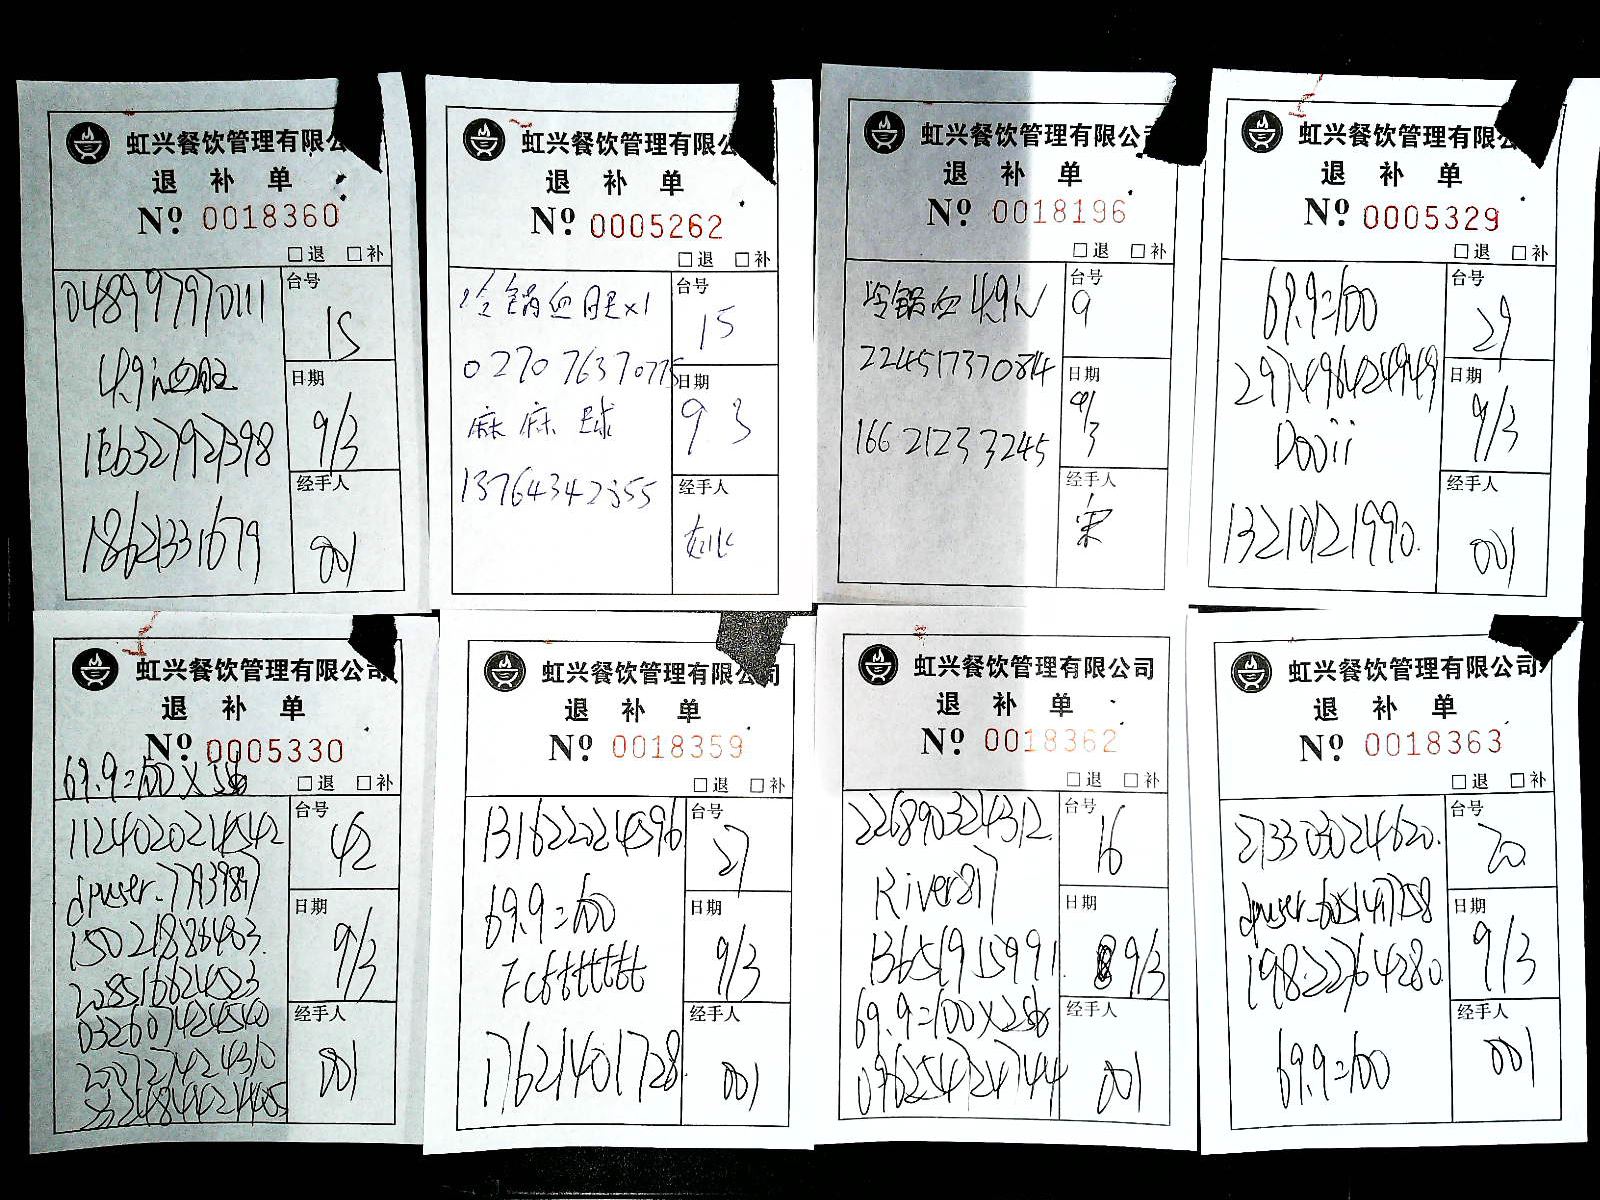 虹兴餐饮管理有限公
退 补 单
Nº 0018360
□退 □补
台号
15
0489979970111
4.9元血旺
日期
9/3
18621331679
经手人
001
虹兴餐饮管理有限公
退 补 单
Nº 0005262
□退 □补
冷锅血旺x1
台号
15
027076370775
麻麻 球
日期
9.3
13764342355
经手人
虹兴餐饮管理有限公
退 补 单
Nº 0018196
□退 □补
冷锅血 4.9元
台号
9
224517370814
日期
9/3
166 2123 3245
经手人
宋
虹兴餐饮管理有限公
退 补 单
Nº 0005329
□退 □补
69.9=100
台号
29
297496424949
Dooii
日期
9/3
13210121990.
经手人
001
虹兴餐饮管理有限公司
退 补 单
Nº 0005330
69.9=100 X 5份
□退 □补
1124020214542
台号
42
15021886483.
日期
9/3
2085166214523
0326074214540
经手人
001
虹兴餐饮管理有限公司
退 补 单
Nº 0018359
□退 □补
1316220214596
台号
27
69.9=100
日期
9/3
17621401728.
经手人
001
虹兴餐饮管理有限公司
退 补 单
Nº 0018362
□退 □补
2268903214312.
台号
16
River817
13651915991.
日期
9/3
69.9=100 X 2份
0962547247144
经手人
001
虹兴餐饮管理有限公司
退 补 单
Nº 0018363
□退 □补
2733030214620.
台号
20
dpuser_6051417258
日期
9/3
19822764280.
69.9=100
经手人
001